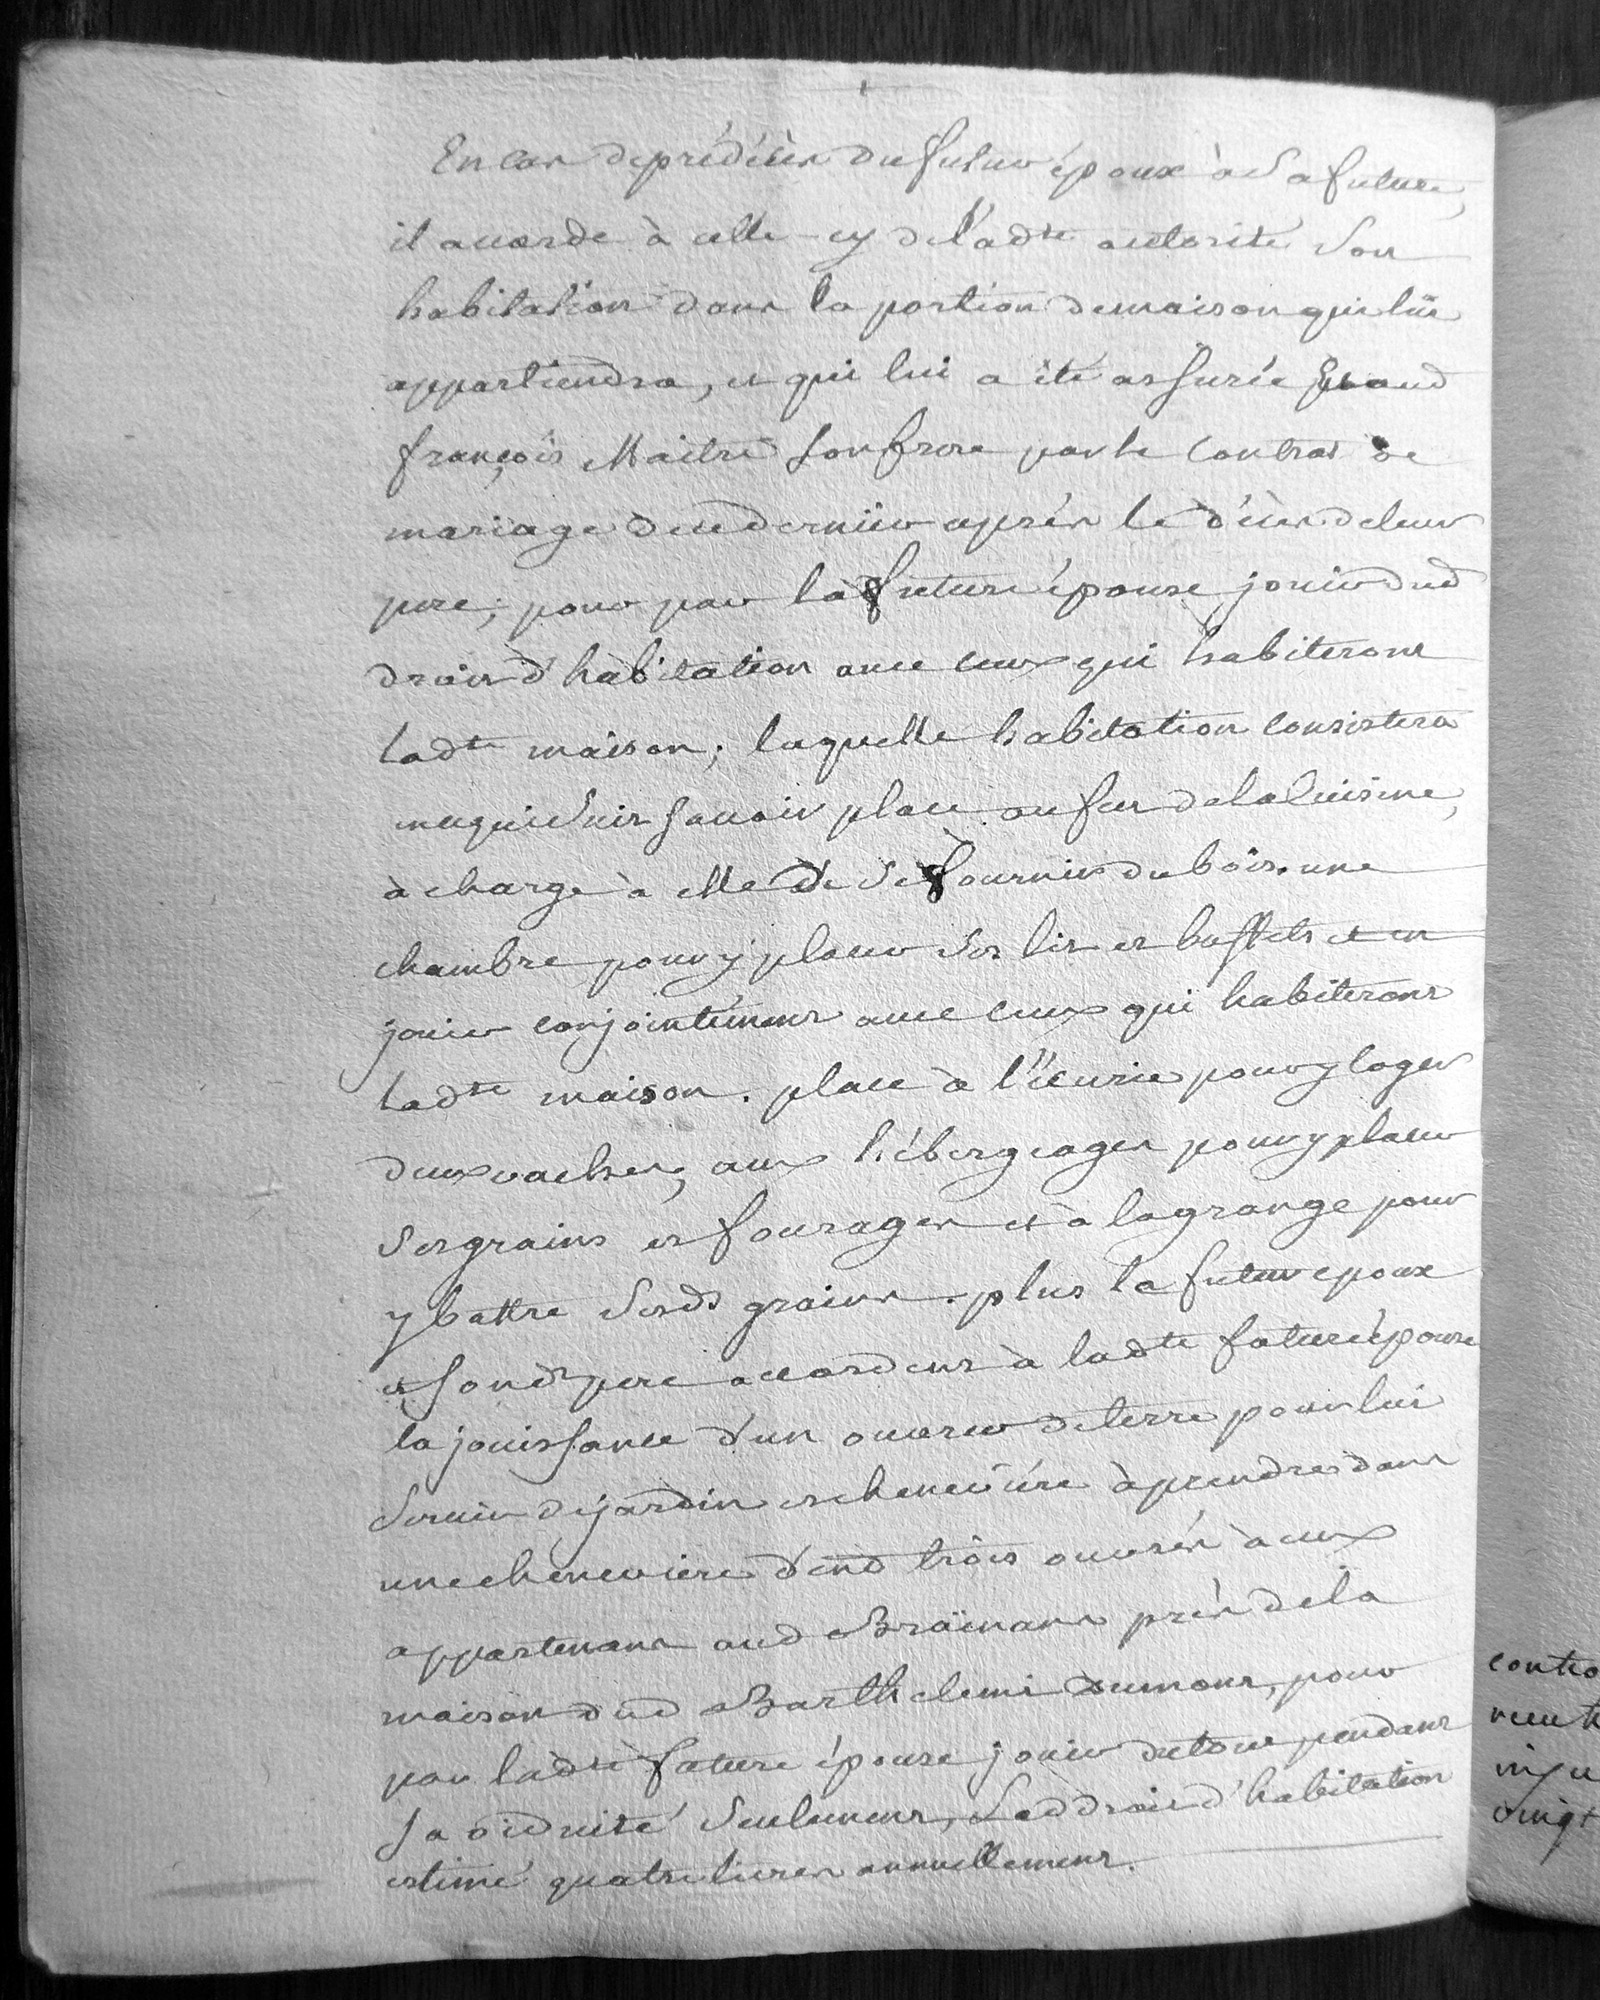 En cas de prédécès du futur époux à sa future,
il accorde à celle-cy de l'adte autorité son
habitation dans la portion de maison qui lui
appartiendra, et qui lui a été assurée et aud
françois Maitre son frere par le contrat de
mariage de ced dernier après le décès de leur
pere; pour par la future épouse jouir dud
droit d'habitation avec ceux qui habiteront
ladte maison; laquelle habitation consistera
en ce qui suit savoir place au feu de la cuisine,
à charge à elle de se fournir du bois. une
chambre pour y placer ses lit et buffets et en
jouir conjointement avec ceux qui habiteront
ladte maison. place à l'écurie pour y loger
deux vaches; aux hébergeages pour y placer
ses grains et fourages et à la grange pour
y battre sesds grains. plus la futur epoux
et sond pere accordent à ladte future épouse
la jouissance d'un ouvrer de terre pour lui
servir de jardin et chenevière à prendre dans
une cheneviere d'end trois ouvrés à eux
appartenant aud Brainans près de la
maison dud Barthelemi Dumont, pour
par ladte future épouse jouir du tout pendant
sa viduité seulement, Led droit d'habitation
estimé quatre livres annuellement.
contro
vingt